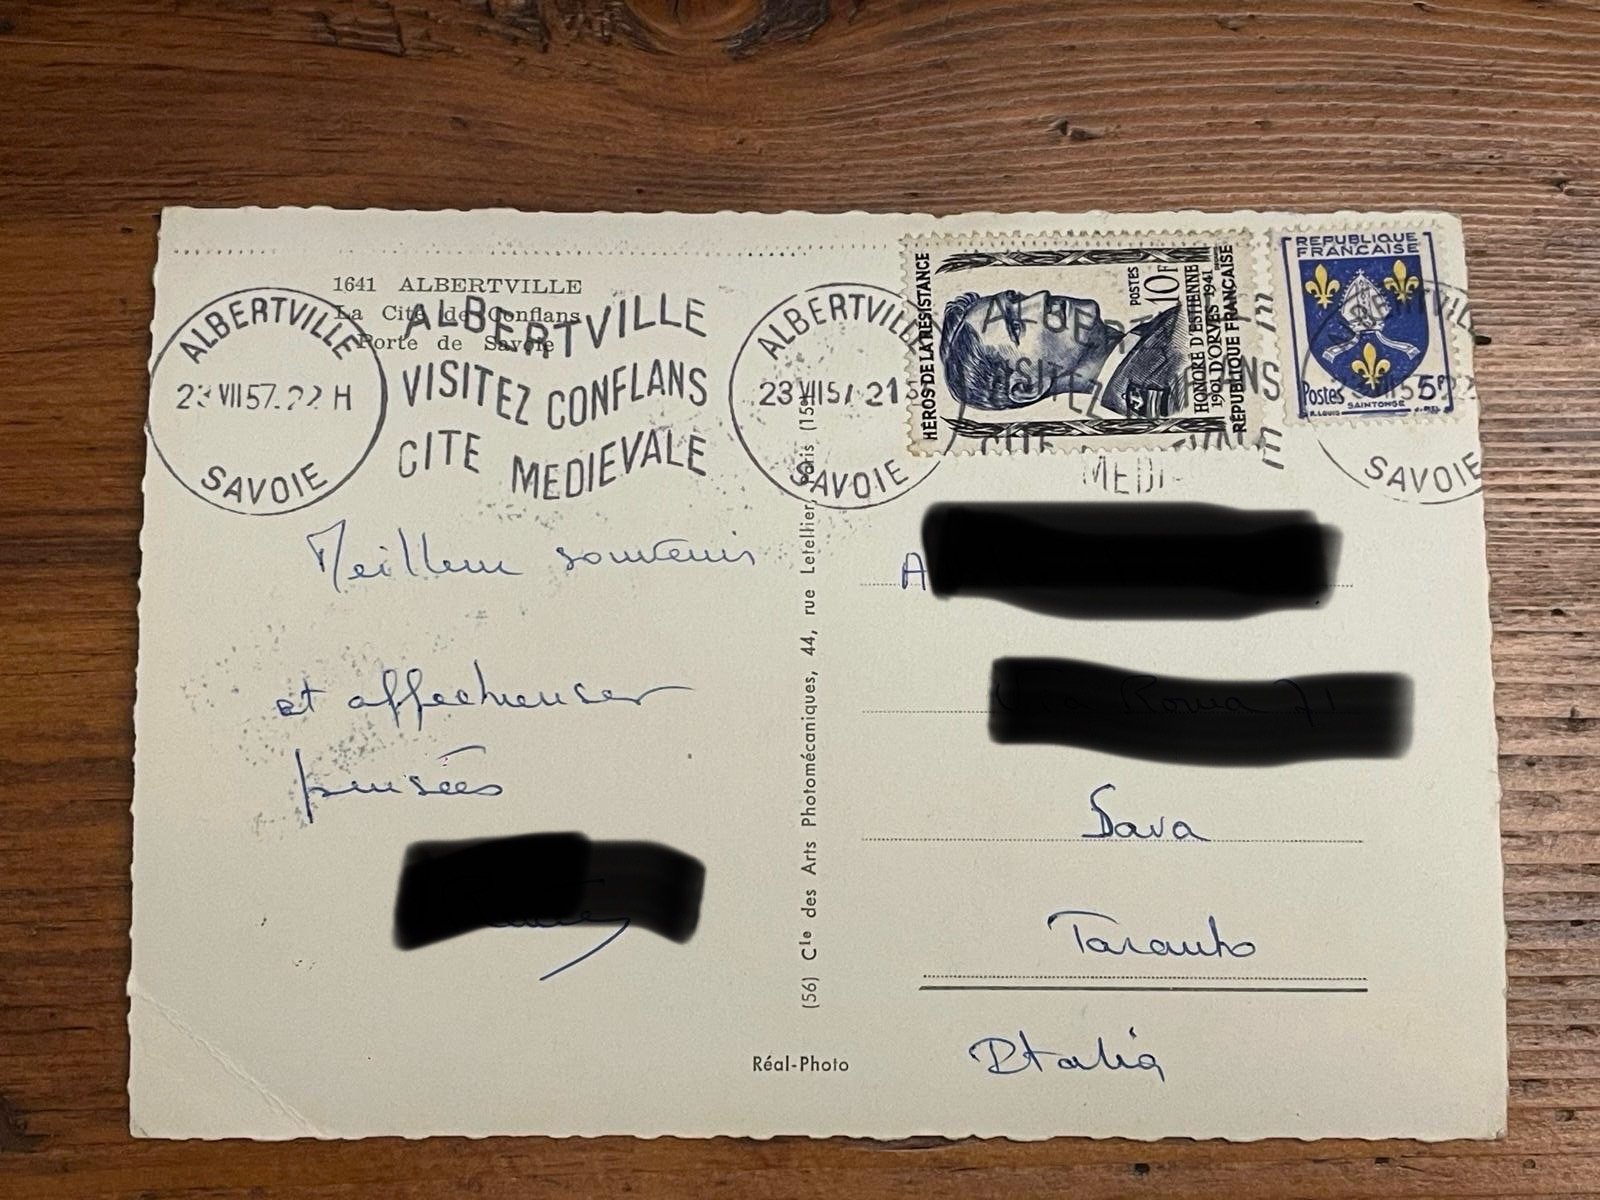 1641 ALBERTVILLE
La Cité de Conflans
Porte de Savoie
ALBERTVILLE
23 VII 57. 22 H
SAVOIE
ALBERTVILLE
VISITEZ CONFLANS
CITE MEDIEVALE
ALBERTVILLE
23 VII 57 21
SAVOIE
HÉROS DE LA RÉSISTANCE
POSTES
10F
HONORÉ D'ESTIENNE
1901 D'ORVES 1941
RÉPUBLIQUE FRANÇAISE
REPUBLIQUE
FRANCAISE
Postes 5F
SAINTONGE
SAVOIE
Meilleur souvenir
et affectueuses
pensées
(56) Cie des Arts Photomécaniques, 44, rue Letellier, Paris (15e)
Réal-Photo
A
Sava
Taranto
Italia